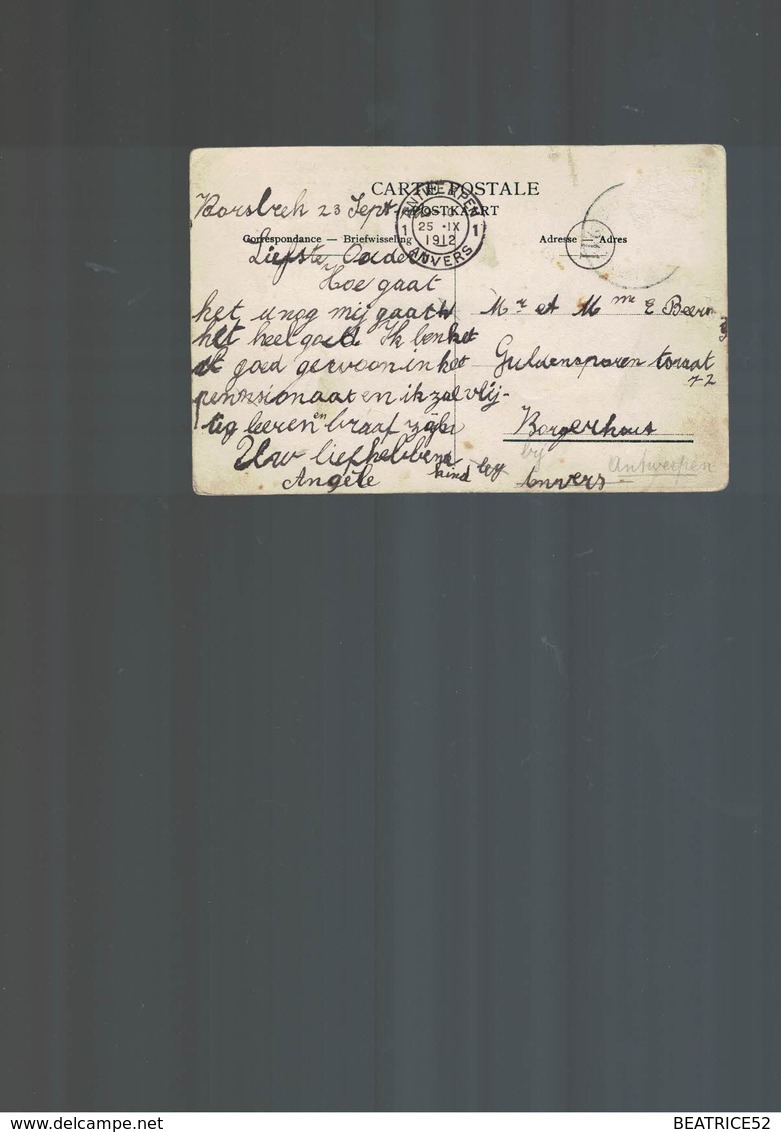 CARTE POSTALE
POSTKAART
ANTWERPEN
1 25 IX 1
1912
ANVERS
Correspondance — Briefwisseling
Adresse — Adres
Borsbeeh 23 Sept
Liefste Ouders
Hoe gaat
het u nog mij gaat
het heel goed Ik ben het
goed gewoon in het
pensionaat en ik zal vlij-
tig leeren en braaf zijn
Uw liefhebbend
kind
Angèle
Mr et Mme E Beern
Guldensporen straat
72
Borgerhout
by
Antwerpen
Anvers
delcampe.net
BEATRICE52